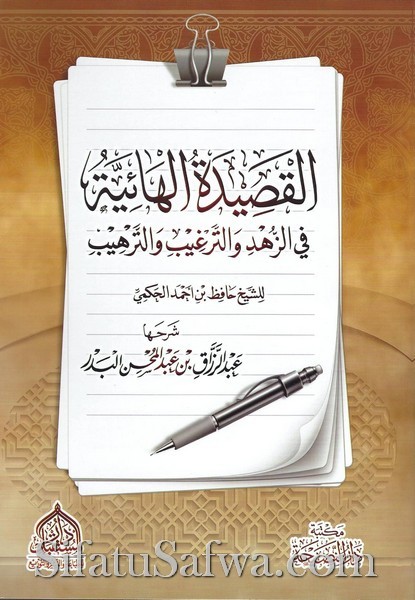 القَصِيدَةُ الهَائِيَّةُ
في الزُّهْدِ وَالتَّرغِيبِ وَالتَّرْهِيبِ
لِلشَّيْخِ حَافِظ بْنِ أحْمَد الحَكَمِيِّ
شَرَحَهَا
عَبْد الرَّزَّاق بْن عَبْد المُحْسِن البَدْر
مكتبة
SifatuSafwa.com